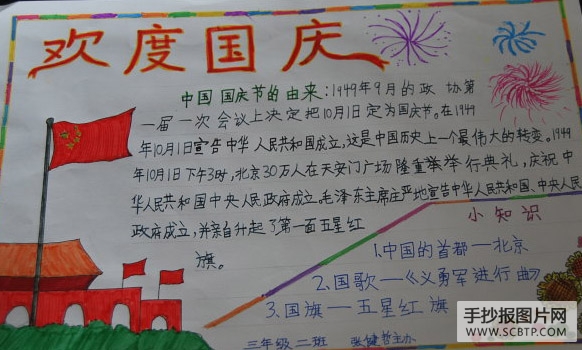 欢度国庆
中国国庆节的由来:1949年9月的政协第
一届一次会议上决定把10月1日定为国庆节。在1949
年10月1日宣告中华人民共和国成立,这是中国历史上一个最伟大的转变。1949
年10月1日下午3时,北京30万人在天安门广场隆重举举行典礼,庆祝中
华人民共和国中央人民政府成立。毛泽东主席庄严地宣告中华人民共和国、中央人民
政府成立,并亲自升起了第一面五星红
旗。
小知识
1.中国的首都—北京
2.国歌—《义勇军进行曲》
3.国旗—五星红旗
三年级二班 张健哲主办
手抄报图片网
WWW.SCBTP.COM